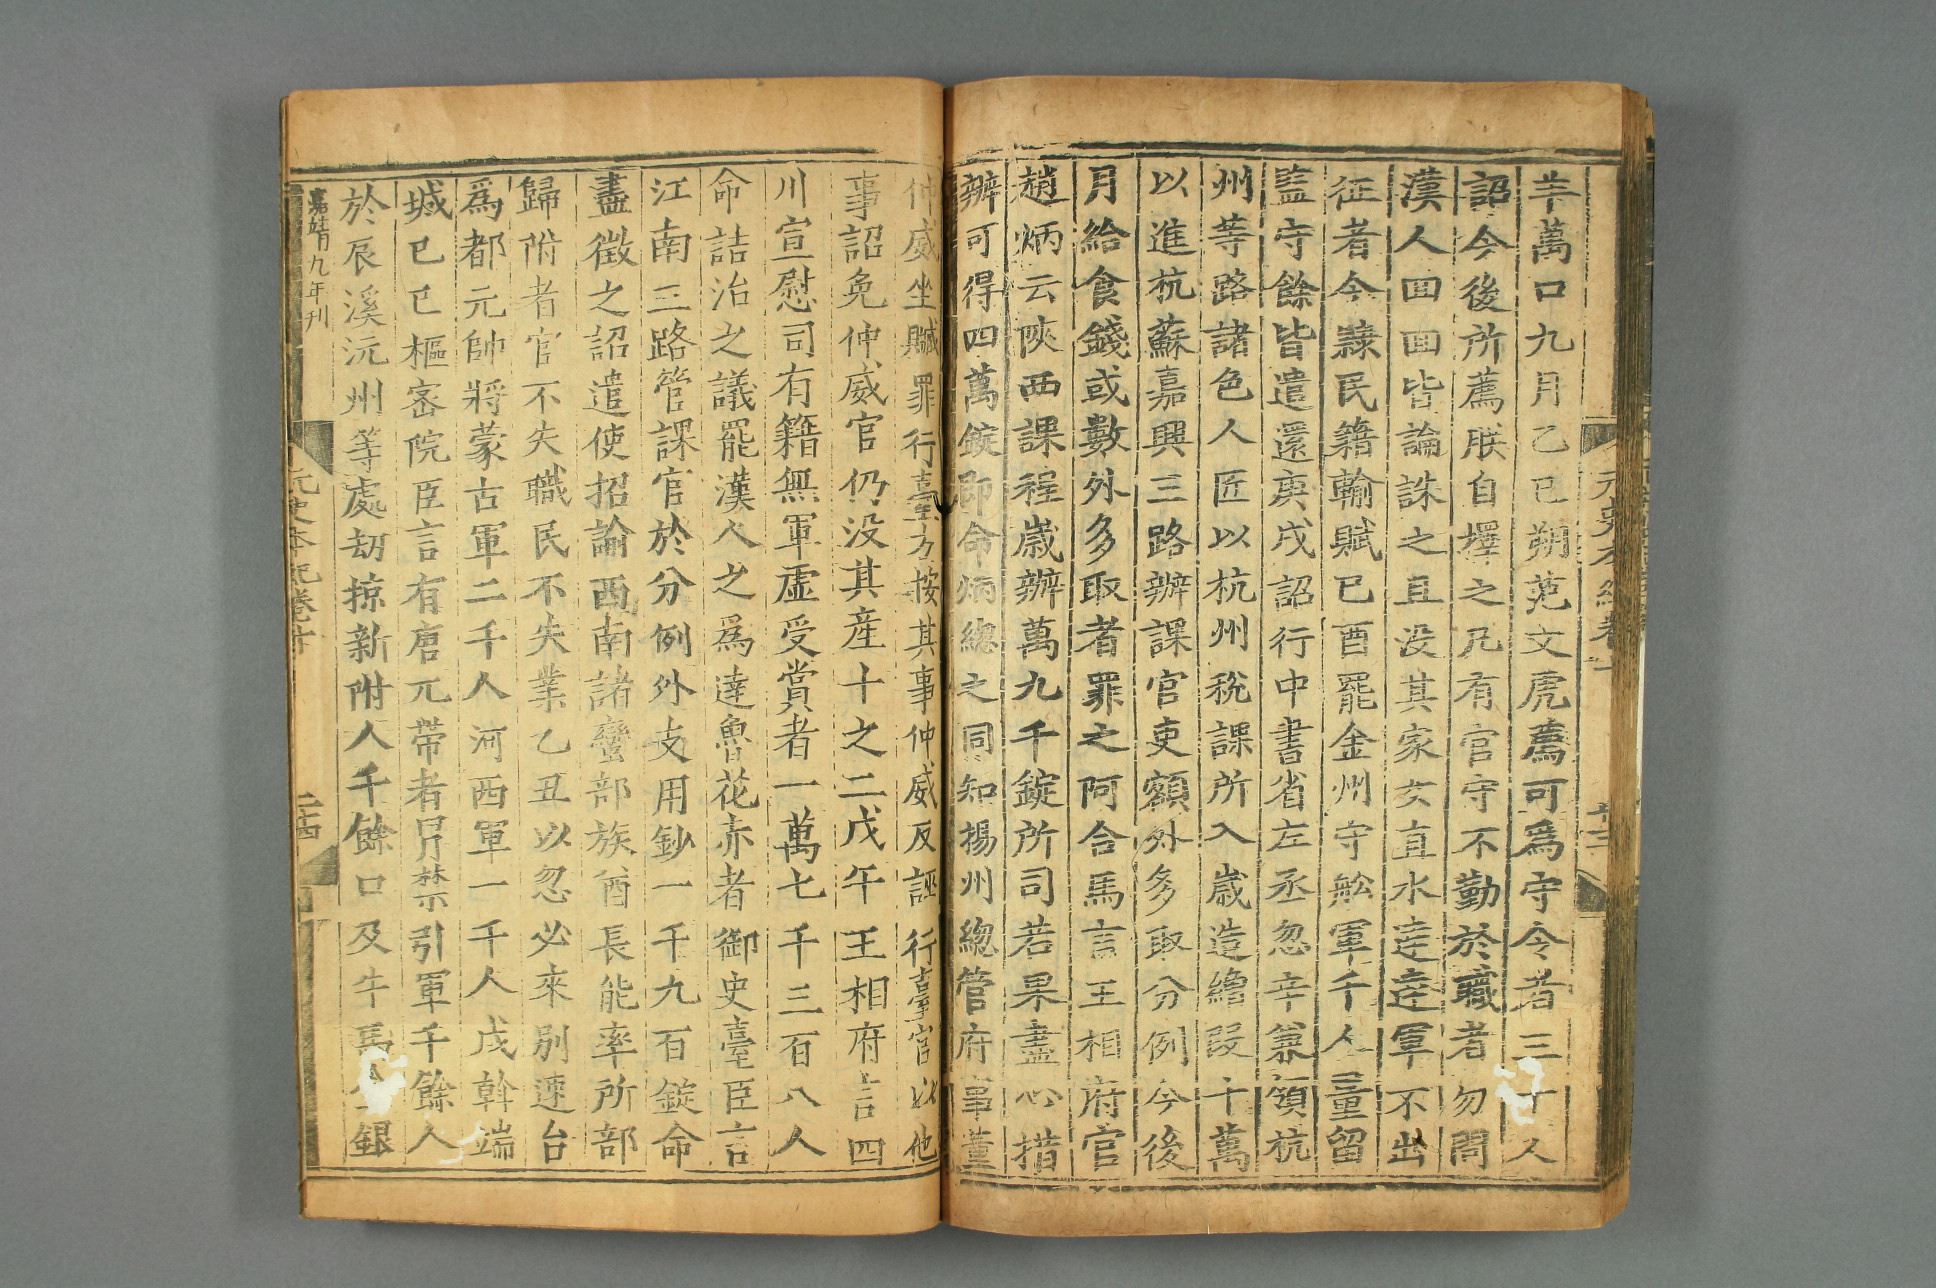 羊萬口九月乙巳朔范文虎薦可爲守令者三十人
詔今後所薦朕自擇之凡有官守不勤於職者勿問
漢人回回皆論誅之且没其家女直水達達軍不出
征者令隸民籍輸賦已酉罷金州守舩軍千人量留
監守餘皆遣還庚戌詔行中書省左丞忽辛兼領杭
州等路諸色人匠以杭州稅課所入歲造繒叚十萬
以進杭蘇嘉興三路辦課官吏額外多取分例今後
月給食錢或數外多取者罪之阿合馬言王相府官
趙炳云陜西課程歲辦萬九千錠所司若果盡心措
辦可得四萬錠即命炳總之同知揚州總管府事董
仲威坐贓罪行臺方按其事仲威反誣行臺官以他
事詔免仲威官仍没其産十之二戊午王相府言四
川宣慰司有籍無軍虚受賞者一萬七千三百八人
命詰治之議罷漢人之爲達魯花赤者御史臺臣言
江南三路管課官於分例外支用鈔一千九百錠命
盡徵之詔遣使招諭西南諸蠻部族酋長能率所部
歸附者官不失職民不失業乙丑以忽必來别速台
爲都元帥將蒙古軍二千人河西軍一千人戍斡端
城己巳樞密院臣言有唐兀帶者冒禁引軍千餘人
於辰溪沅州等處刼掠新附人千餘口及牛馬金銀
嘉靖九年刊
元史本紀卷十
二十四